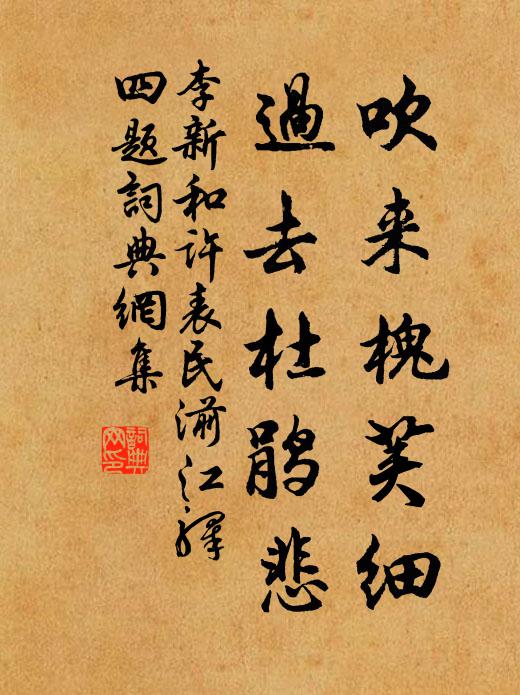 吹来槐荚细
過去杜鹃悲
李新和许表民湔江驿
四题詞典網集
詞典
网印